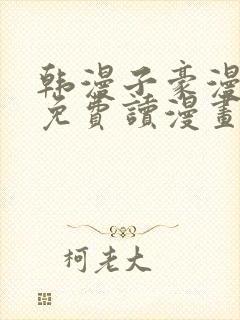 韩漫子豪漫
免費讀漫畫
柯老大